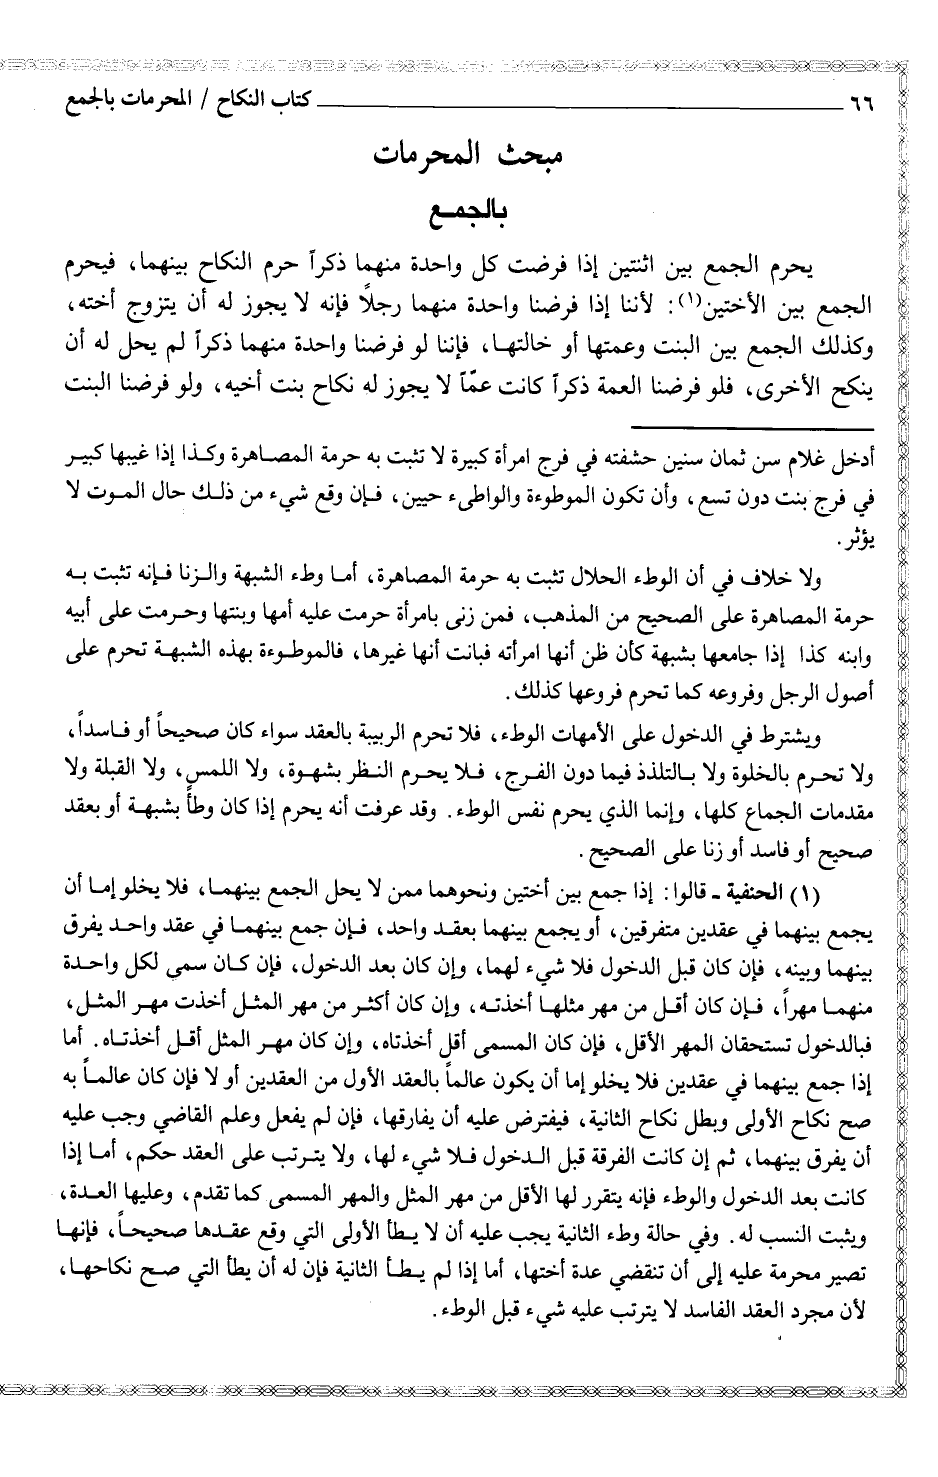 ٦٦ كتاب النكاح / المحرمات بالجمع
مبحث المحرمات
بالجمع
يحرم الجمع بين اثنتين إذا فرضت كل واحدة منهما ذكراً حرم النكاح بينهما، فيحرم
الجمع بين الأختين(١): لأننا إذا فرضنا واحدة منهما رجلاً فإنه لا يجوز له أن يتزوج أخته،
وكذلك الجمع بين البنت وعمتها أو خالتها، فإننا لو فرضنا واحدة منهما ذكراً لم يحل له أن
ينكح الأخرى، فلو فرضنا العمة ذكراً كانت عمّاً لا يجوز له نكاح بنت أخيه، ولو فرضنا البنت
أدخل غلام سن ثمان سنين حشفته في فرج امرأة كبيرة لا تثبت به حرمة المصاهرة وكذا إذا غيبها كبير
في فرج بنت دون تسع، وأن تكون الموطوءة والواطىء حيين، فإن وقع شيء من ذلك حال الموت لا
يؤثر.
ولا خلاف في أن الوطء الحلال تثبت به حرمة المصاهرة، أما وطء الشبهة والزنا فإنه تثبت به
حرمة المصاهرة على الصحيح من المذهب، فمن زنى بامرأة حرمت عليه أمها وبنتها وحرمت على أبيه
وابنه كذا إذا جامعها بشبهة كأن ظن أنها امرأته فبانت أنها غيرها، فالموطوءة بهذه الشبهة تحرم على
أصول الرجل وفروعه كما تحرم فروعها كذلك.
ويشترط في الدخول على الأمهات الوطء، فلا تحرم الربيبة بالعقد سواء كان صحيحاً أو فاسداً،
ولا تحرم بالخلوة ولا بالتلذذ فيما دون الفرج، فلا يحرم النظر بشهوة، ولا اللمس، ولا القبلة ولا
مقدمات الجماع كلها، وإنما الذي يحرم نفس الوطء. وقد عرفت أنه يحرم إذا كان وطأً بشبهة أو بعقد
صحيح أو فاسد أو زنا على الصحيح.
(١) الحنفية ـ قالوا: إذا جمع بين أختين ونحوهما ممن لا يحل الجمع بينهما، فلا يخلو إما أن
يجمع بينهما في عقدين متفرقين، أو يجمع بينهما بعقد واحد، فإن جمع بينهما في عقد واحد يفرق
بينهما وبينه، فإن كان قبل الدخول فلا شيء لهما، وإن كان بعد الدخول، فإن كان سمى لكل واحدة
منهما مهراً، فإن كان أقل من مهر مثلها أخذته، وإن كان أكثر من مهر المثل أخذت مهر المثل،
فبالدخول تستحقان المهر الأقل، فإن كان المسمى أقل أخذتاه، وإن كان مهر المثل أقل أخذتاه. أما
إذا جمع بينهما في عقدين فلا يخلو إما أن يكون عالماً بالعقد الأول من العقدين أو لا فإن كان عالماً به
صح نكاح الأولى وبطل نكاح الثانية، فيفترض عليه أن يفارقها، فإن لم يفعل وعلم القاضي وجب عليه
أن يفرق بينهما، ثم إن كانت الفرقة قبل الدخول فلا شيء لها، ولا يترتب على العقد حكم، أما إذا
كانت بعد الدخول والوطء فإنه يتقرر لها الأقل من مهر المثل والمهر المسمى كما تقدم، وعليها العدة،
ويثبت النسب له. وفي حالة وطء الثانية يجب عليه أن لا يطأ الأولى التي وقع عقدها صحيحاً، فإنها
تصير محرمة عليه إلى أن تنقضي عدة أختها، أما إذا لم يطأ الثانية فإن له أن يطأ التي صح نكاحها،
لأن مجرد العقد الفاسد لا يترتب عليه شيء قبل الوطء.